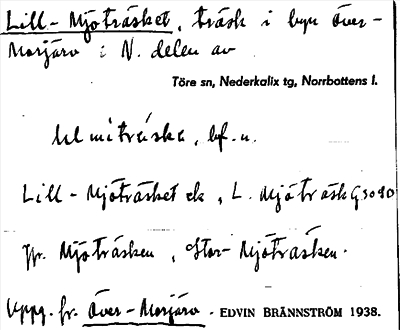 Lill-Mjöträsket, träsk i byn Över-
Morjärv i N. delen av
Töre sn, Nederkalix tg, Norrbottens l.
bf. n.
Lill-Mjöträsket ek, L. Mjöträsk
Jfr. Mjöträsken, Stor-Mjöträsken.
Uppg. fr. Över-Morjärv. EDVIN BRÄNNSTRÖM 1938.